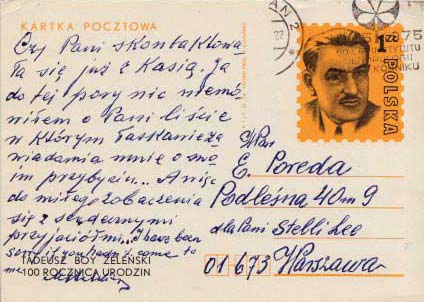 KARTKA POCZTOWA
Czy Pani skontaktowa
ła się już z Kasią. Ja
do tej pory nie wiemó
niłem o Pani liście
w którym łaskanie za
wiadamia mnie o swo
im przybyciu... A więc
do miłego zobaczenia
się z serdecznymi
przyjaciółmi... I have been
sorry you hadn't come to
me
TADEUSZ BOY ŻELEŃSKI
100 ROCZNICA URODZIN
1 zł
POLSKA
75
WPan
E. Poreda
Podleśna 40 m 9
dla Pani Stelli Lee
01 673 Warszawa